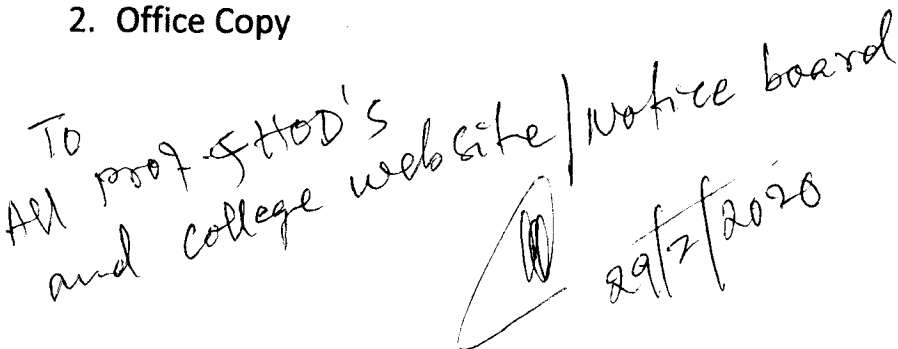 2. Office Copy
To
All prof & HOD's
and college website/Notice board
29/2/2020